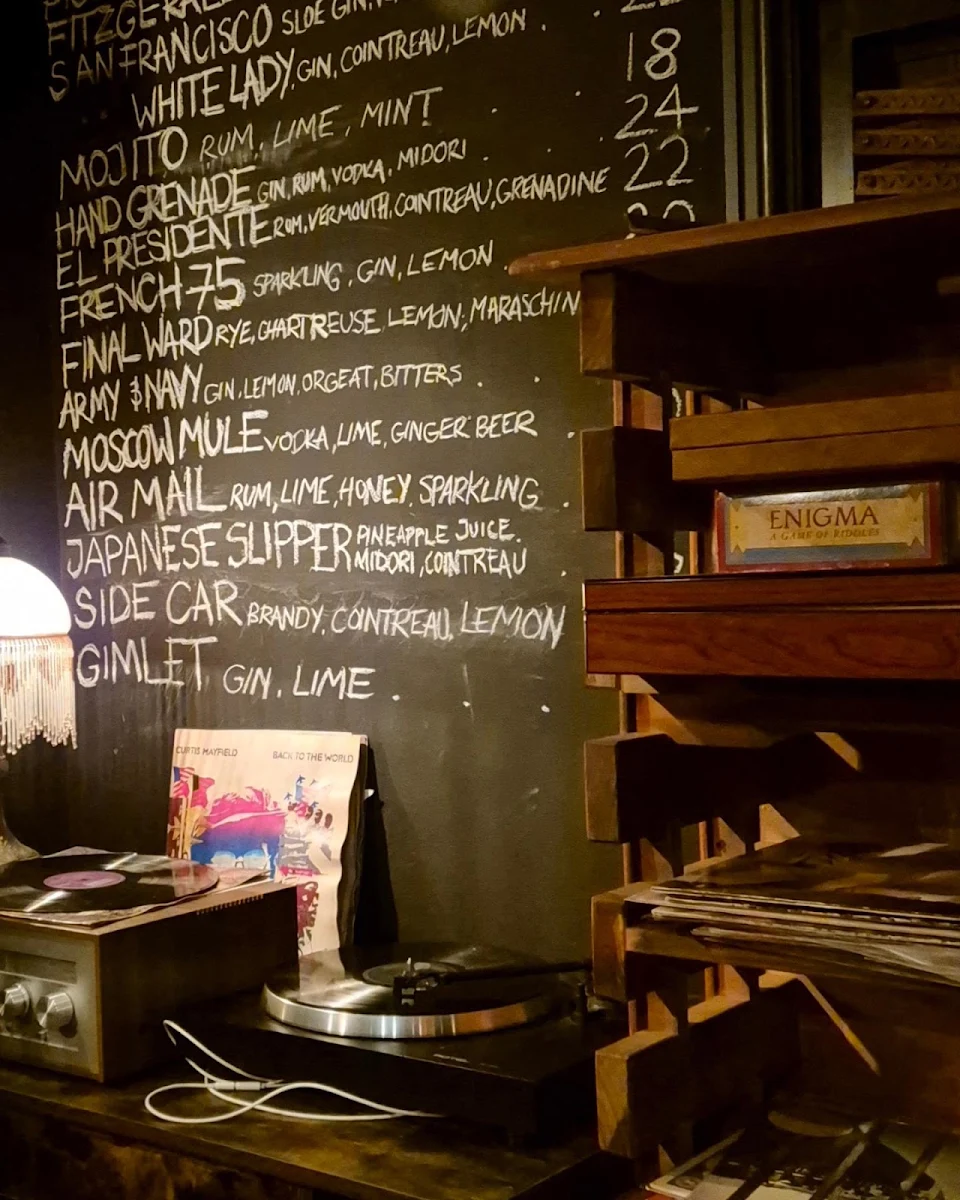 FITZGERALD
SAN FRANCISCO SLOE GIN,
WHITE LADY. GIN, COINTREAU, LEMON .
MOJITO RUM, LIME, MINT . . 18
HAND GRENADE GIN, RUM, VODKA, MIDORI . . 24
EL PRESIDENTE RUM, VERMOUTH, COINTREAU, GRENADINE 22
FRENCH 75 SPARKLING, GIN, LEMON .
FINAL WARD RYE, CHARTREUSE, LEMON, MARASCHIN
ARMY & NAVY GIN, LEMON, ORGEAT, BITTERS . .
MOSCOW MULE VODKA, LIME, GINGER BEER .
AIR MAIL RUM, LIME, HONEY, SPARKLING .
JAPANESE SLIPPER PINEAPPLE JUICE.
MIDORI, COINTREAU .
SIDE CAR BRANDY, COINTREAU, LEMON
GIMLET GIN, LIME . . .
ENIGMA
A GAME OF RIDDLES
CURTIS MAYFIELD BACK TO THE WORLD